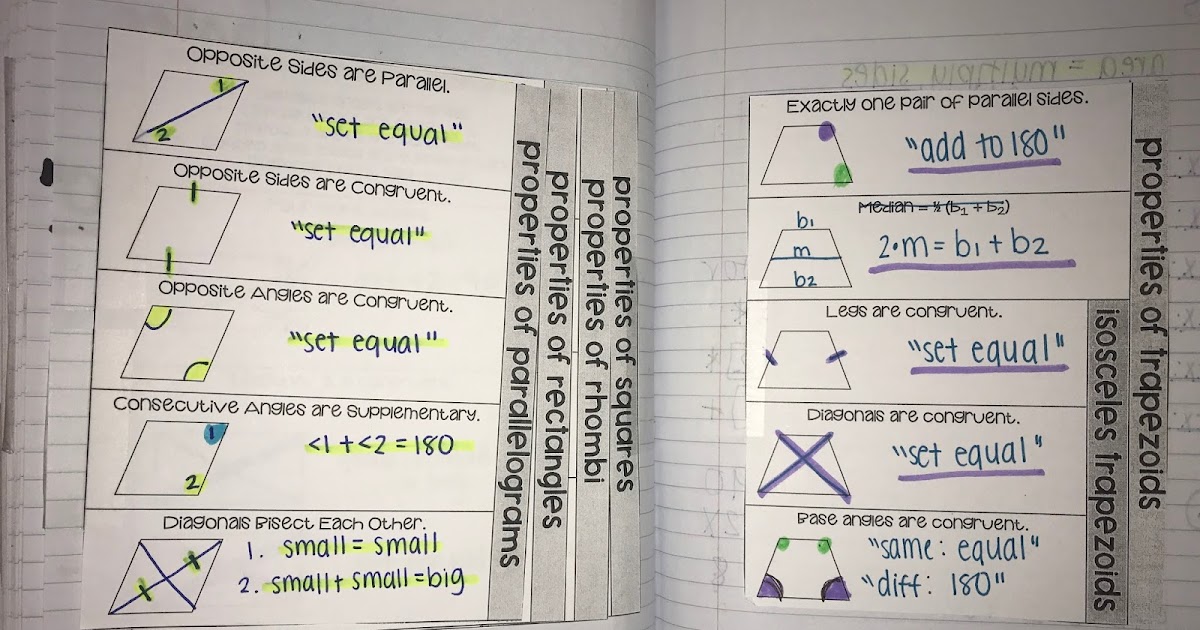 Opposite Sides are Parallel.
1
2
"set equal"
Opposite Sides are Congruent.
"set equal"
Opposite Angles are Congruent.
"set equal"
Consecutive Angles are Supplementary.
1
2
<1 + <2 = 180
Diagonals Bisect Each Other.
1. small = small
2. small + small = big
properties of parallelograms
properties of rectangles
properties of rhombi
properties of squares
area = multiply sides
Exactly one pair of parallel sides.
"add to 180"
Median = ½ (b₁ + b₂)
b₁
m
b₂
2·m = b₁ + b₂
Legs are congruent.
"set equal"
Diagonals are congruent.
"set equal"
Base angles are congruent.
"same: equal"
"diff: 180"
isosceles trapezoids
properties of trapezoids